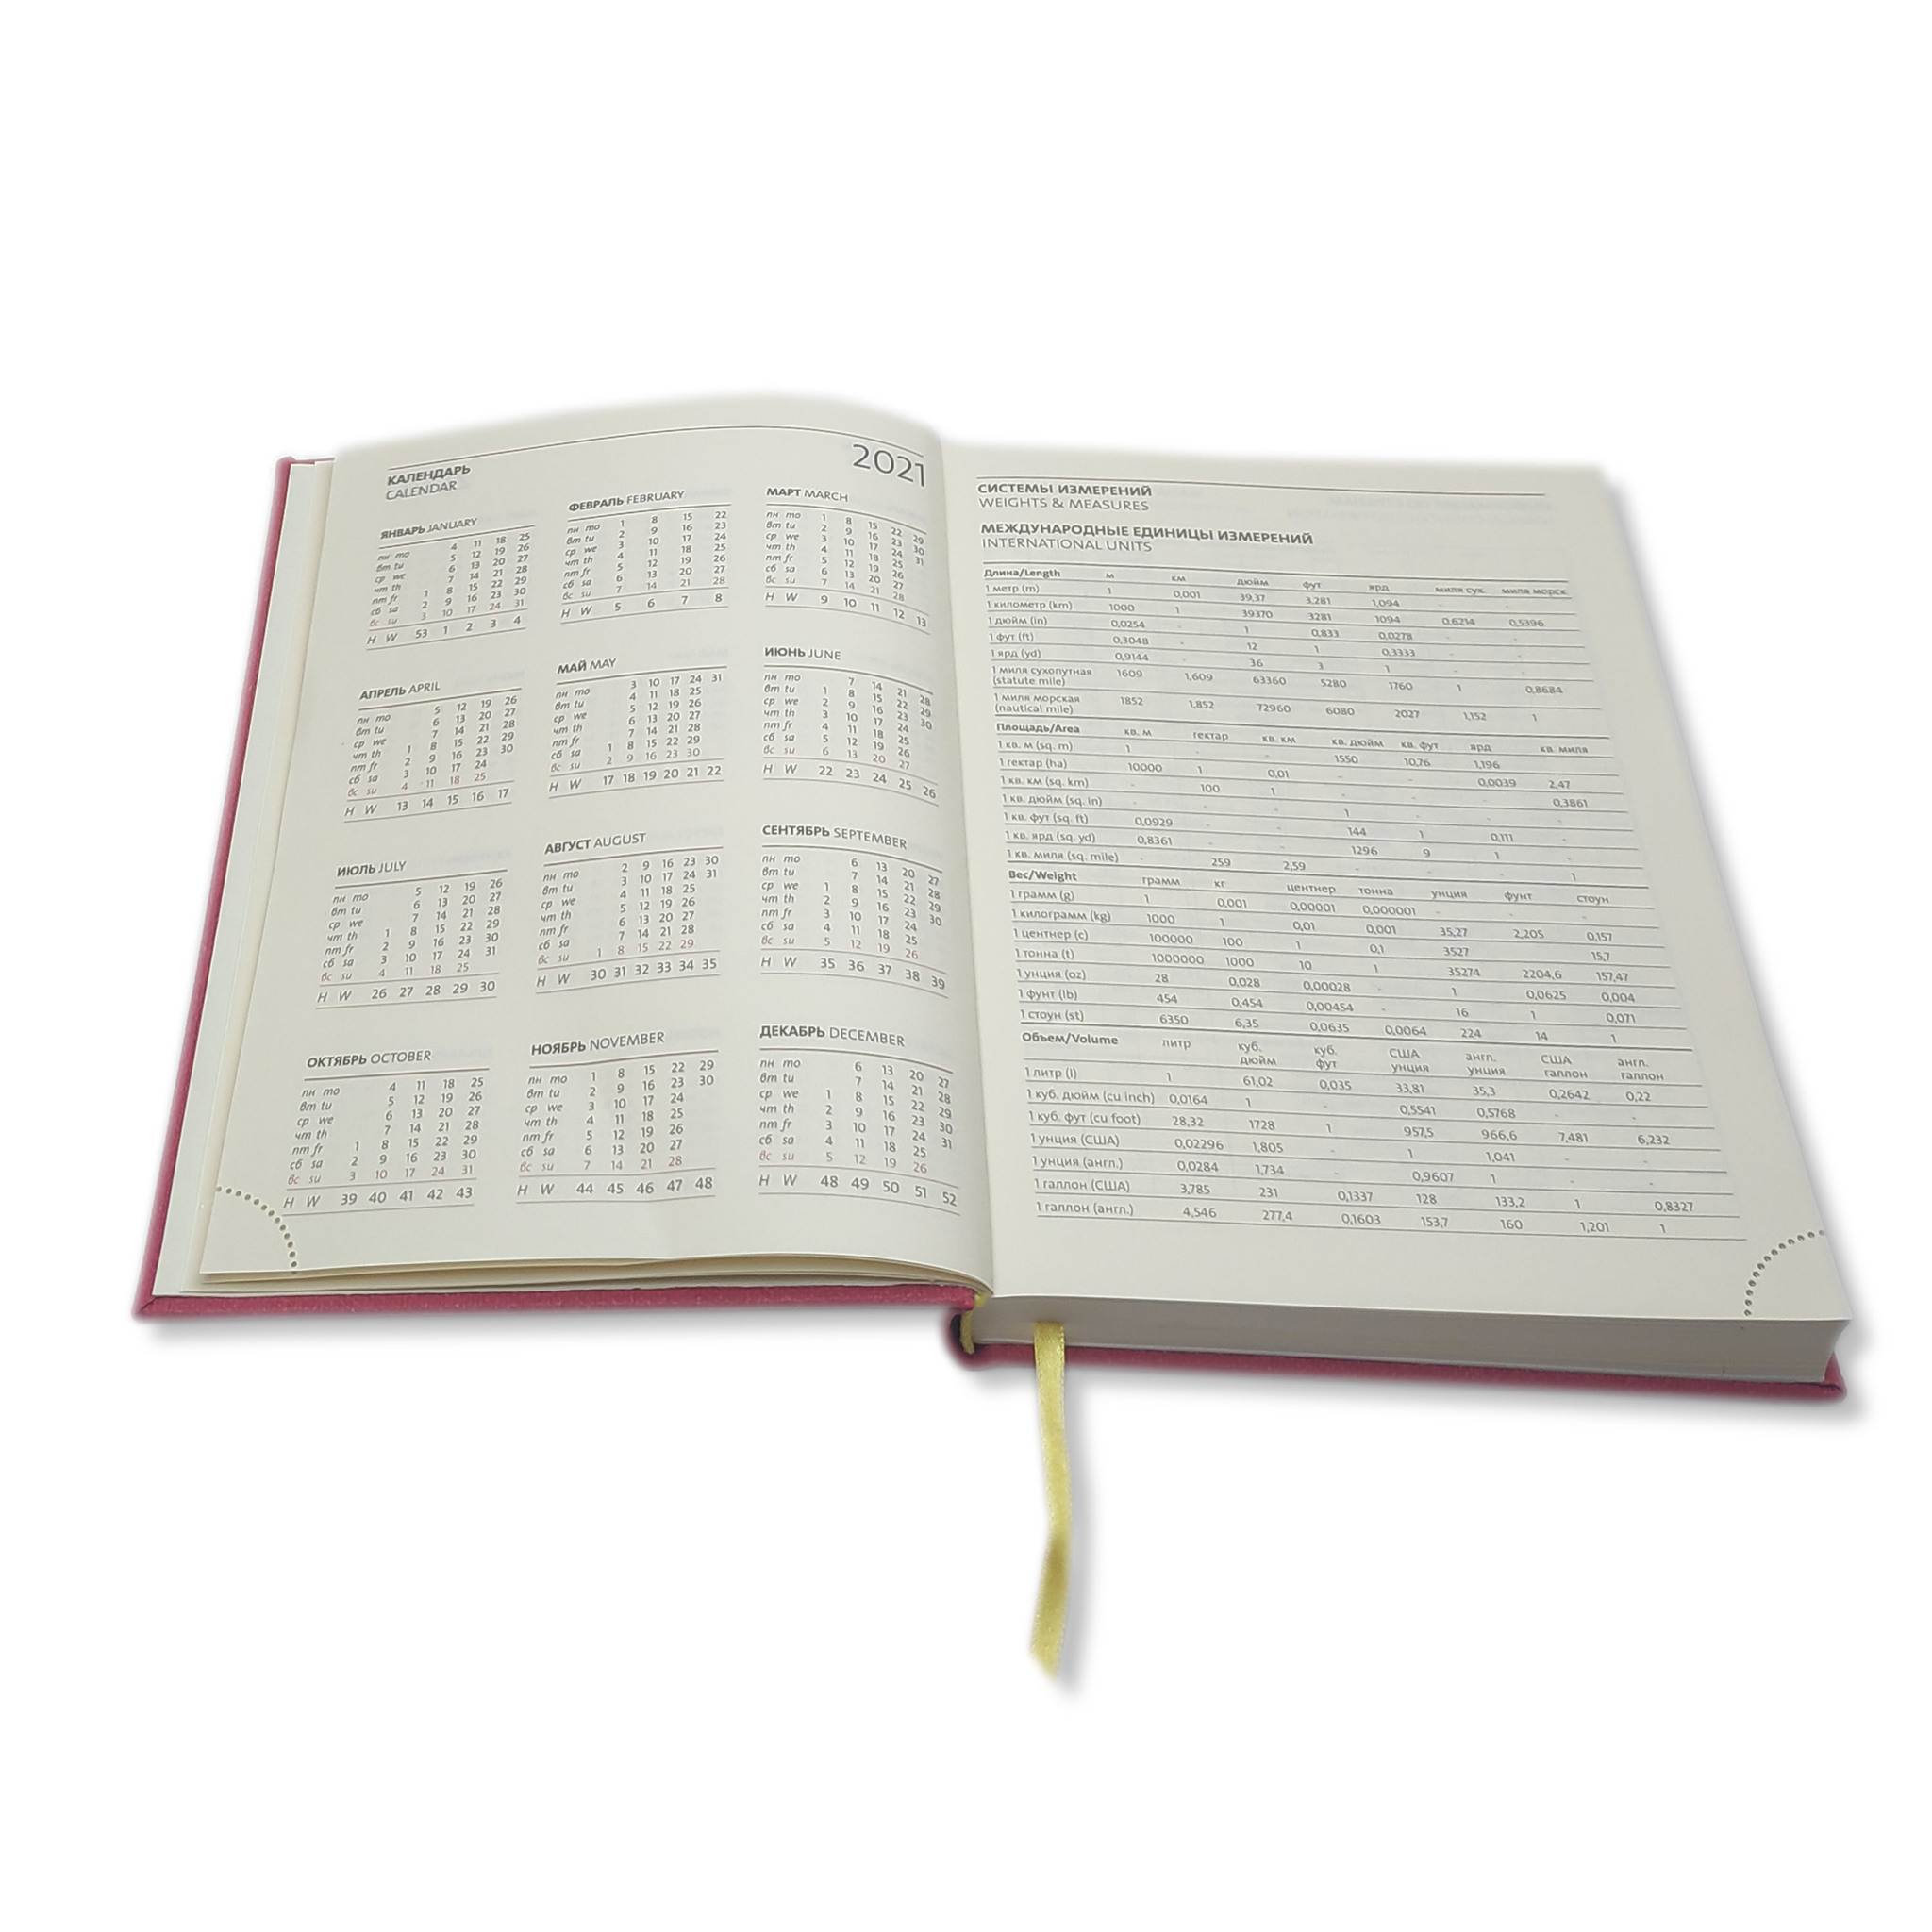 КАЛЕНДАРЬ
CALENDAR
2021
ЯНВАРЬ JANUARY
пн mo 4 11 18 25
вт tu 5 12 19 26
ср we 6 13 20 27
чт th 7 14 21 28
пт fr 1 8 15 22 29
сб sa 2 9 16 23 30
вс su 3 10 17 24 31
Н W 53 1 2 3 4
ФЕВРАЛЬ FEBRUARY
пн mo 1 8 15 22
вт tu 2 9 16 23
ср we 3 10 17 24
чт th 4 11 18 25
пт fr 5 12 19 26
сб sa 6 13 20 27
вс su 7 14 21 28
Н W 5 6 7 8
МАРТ MARCH
пн mo 1 8 15 22 29
вт tu 2 9 16 23 30
ср we 3 10 17 24 31
чт th 4 11 18 25
пт fr 5 12 19 26
сб sa 6 13 20 27
вс su 7 14 21 28
Н W 9 10 11 12 13
АПРЕЛЬ APRIL
пн mo 5 12 19 26
вт tu 6 13 20 27
ср we 7 14 21 28
чт th 1 8 15 22 29
пт fr 2 9 16 23 30
сб sa 3 10 17 24
вс su 4 11 18 25
Н W 13 14 15 16 17
МАЙ MAY
пн mo 3 10 17 24 31
вт tu 4 11 18 25
ср we 5 12 19 26
чт th 6 13 20 27
пт fr 7 14 21 28
сб sa 1 8 15 22 29
вс su 2 9 16 23 30
Н W 17 18 19 20 21 22
ИЮНЬ JUNE
пн mo 7 14 21 28
вт tu 1 8 15 22 29
ср we 2 9 16 23 30
чт th 3 10 17 24
пт fr 4 11 18 25
сб sa 5 12 19 26
вс su 6 13 20 27
Н W 22 23 24 25 26
ИЮЛЬ JULY
пн mo 5 12 19 26
вт tu 6 13 20 27
ср we 7 14 21 28
чт th 1 8 15 22 29
пт fr 2 9 16 23 30
сб sa 3 10 17 24 31
вс su 4 11 18 25
Н W 26 27 28 29 30
АВГУСТ AUGUST
пн mo 2 9 16 23 30
вт tu 3 10 17 24 31
ср we 4 11 18 25
чт th 5 12 19 26
пт fr 6 13 20 27
сб sa 7 14 21 28
вс su 1 8 15 22 29
Н W 30 31 32 33 34 35
СЕНТЯБРЬ SEPTEMBER
пн mo 6 13 20 27
вт tu 7 14 21 28
ср we 1 8 15 22 29
чт th 2 9 16 23 30
пт fr 3 10 17 24
сб sa 4 11 18 25
вс su 5 12 19 26
Н W 35 36 37 38 39
ОКТЯБРЬ OCTOBER
пн mo 4 11 18 25
вт tu 5 12 19 26
ср we 6 13 20 27
чт th 7 14 21 28
пт fr 1 8 15 22 29
сб sa 2 9 16 23 30
вс su 3 10 17 24 31
Н W 39 40 41 42 43
НОЯБРЬ NOVEMBER
пн mo 1 8 15 22 29
вт tu 2 9 16 23 30
ср we 3 10 17 24
чт th 4 11 18 25
пт fr 5 12 19 26
сб sa 6 13 20 27
вс su 7 14 21 28
Н W 44 45 46 47 48
ДЕКАБРЬ DECEMBER
пн mo 6 13 20 27
вт tu 7 14 21 28
ср we 1 8 15 22 29
чт th 2 9 16 23 30
пт fr 3 10 17 24 31
сб sa 4 11 18 25
вс su 5 12 19 26
Н W 48 49 50 51 52
СИСТЕМЫ ИЗМЕРЕНИЙ
WEIGHTS & MEASURES
МЕЖДУНАРОДНЫЕ ЕДИНИЦЫ ИЗМЕРЕНИЙ
INTERNATIONAL UNITS
Длина/Length м км дюйм фут ярд миля сух. миля морск.
1 метр (m) 1 0,001 39,37 3,281 1,094 - -
1 километр (km) 1000 1 39370 3281 1094 0,6214 0,5396
1 дюйм (in) 0,0254 - 1 0,833 0,0278 - -
1 фут (ft) 0,3048 - 12 1 0,3333 - -
1 ярд (yd) 0,9144 - 36 3 1 - -
1 миля сухопутная
(statute mile) 1609 1,609 63360 5280 1760 1 0,8684
1 миля морская
(nautical mile) 1852 1,852 72960 6080 2027 1,152 1
Площадь/Area кв. м гектар кв. км кв. дюйм кв. фут ярд кв. миля
1 кв. м (sq. m) 1 - - 1550 10,76 1,196 -
1 гектар (ha) 10000 1 0,01 - - 0,0039 2,47
1 кв. км (sq. km) - 100 1 - - - 0,3861
1 кв. дюйм (sq. in) - - - 1 - - -
1 кв. фут (sq. ft) 0,0929 - - 144 1 0,111 -
1 кв. ярд (sq. yd) 0,8361 - - 1296 9 1 -
1 кв. миля (sq. mile) - 259 2,59 - - - 1
Вес/Weight грамм кг центнер тонна унция фунт стоун
1 грамм (g) 1 0,001 0,00001 0,000001 - - -
1 килограмм (kg) 1000 1 0,01 0,001 35,27 2,205 0,157
1 центнер (c) 100000 100 1 0,1 3527 15,7
1 тонна (t) 1000000 1000 10 1 35274 2204,6 157,47
1 унция (oz) 28 0,028 0,00028 - 1 0,0625 0,004
1 фунт (lb) 454 0,454 0,00454 - 16 1 0,071
1 стоун (st) 6350 6,35 0,0635 0,0064 224 14 1
Объем/Volume литр куб. дюйм куб. фут США унция англ. унция США галлон англ. галлон
1 литр (l) 1 61,02 0,035 33,81 35,3 0,2642 0,22
1 куб. дюйм (cu inch) 0,0164 1 - 0,5541 0,5768 - -
1 куб. фут (cu foot) 28,32 1728 1 957,5 966,6 7,481 6,232
1 унция (США) 0,02296 1,805 - 1 1,041 - -
1 унция (англ.) 0,0284 1,734 - 0,9607 1 - -
1 галлон (США) 3,785 231 0,1337 128 133,2 1 0,8327
1 галлон (англ.) 4,546 277,4 0,1603 153,7 160 1,201 1